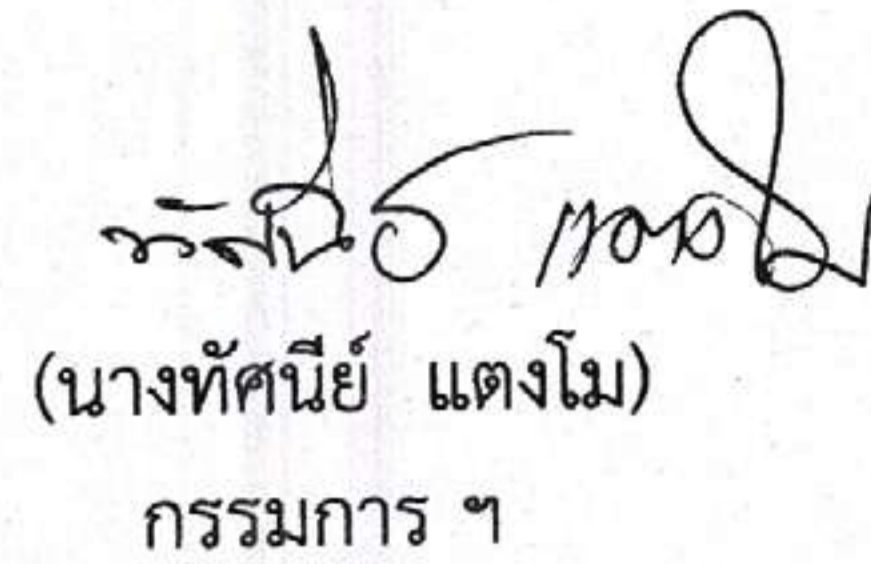 ทัศนีย์ แตงโม
(นางทัศนีย์ แตงโม)
กรรมการ ฯ